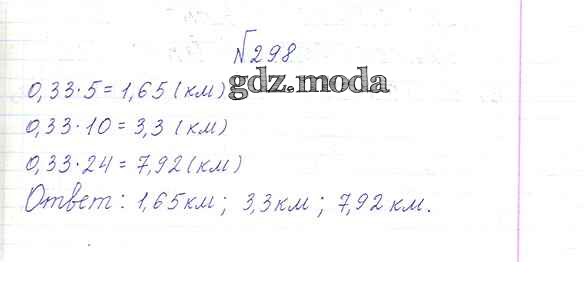 №298
0,33·5=1,65(км) gdz.moda
0,33·10=3,3(км)
0,33·24=7,92(км)
Ответ: 1,65км; 3,3км; 7,92км.